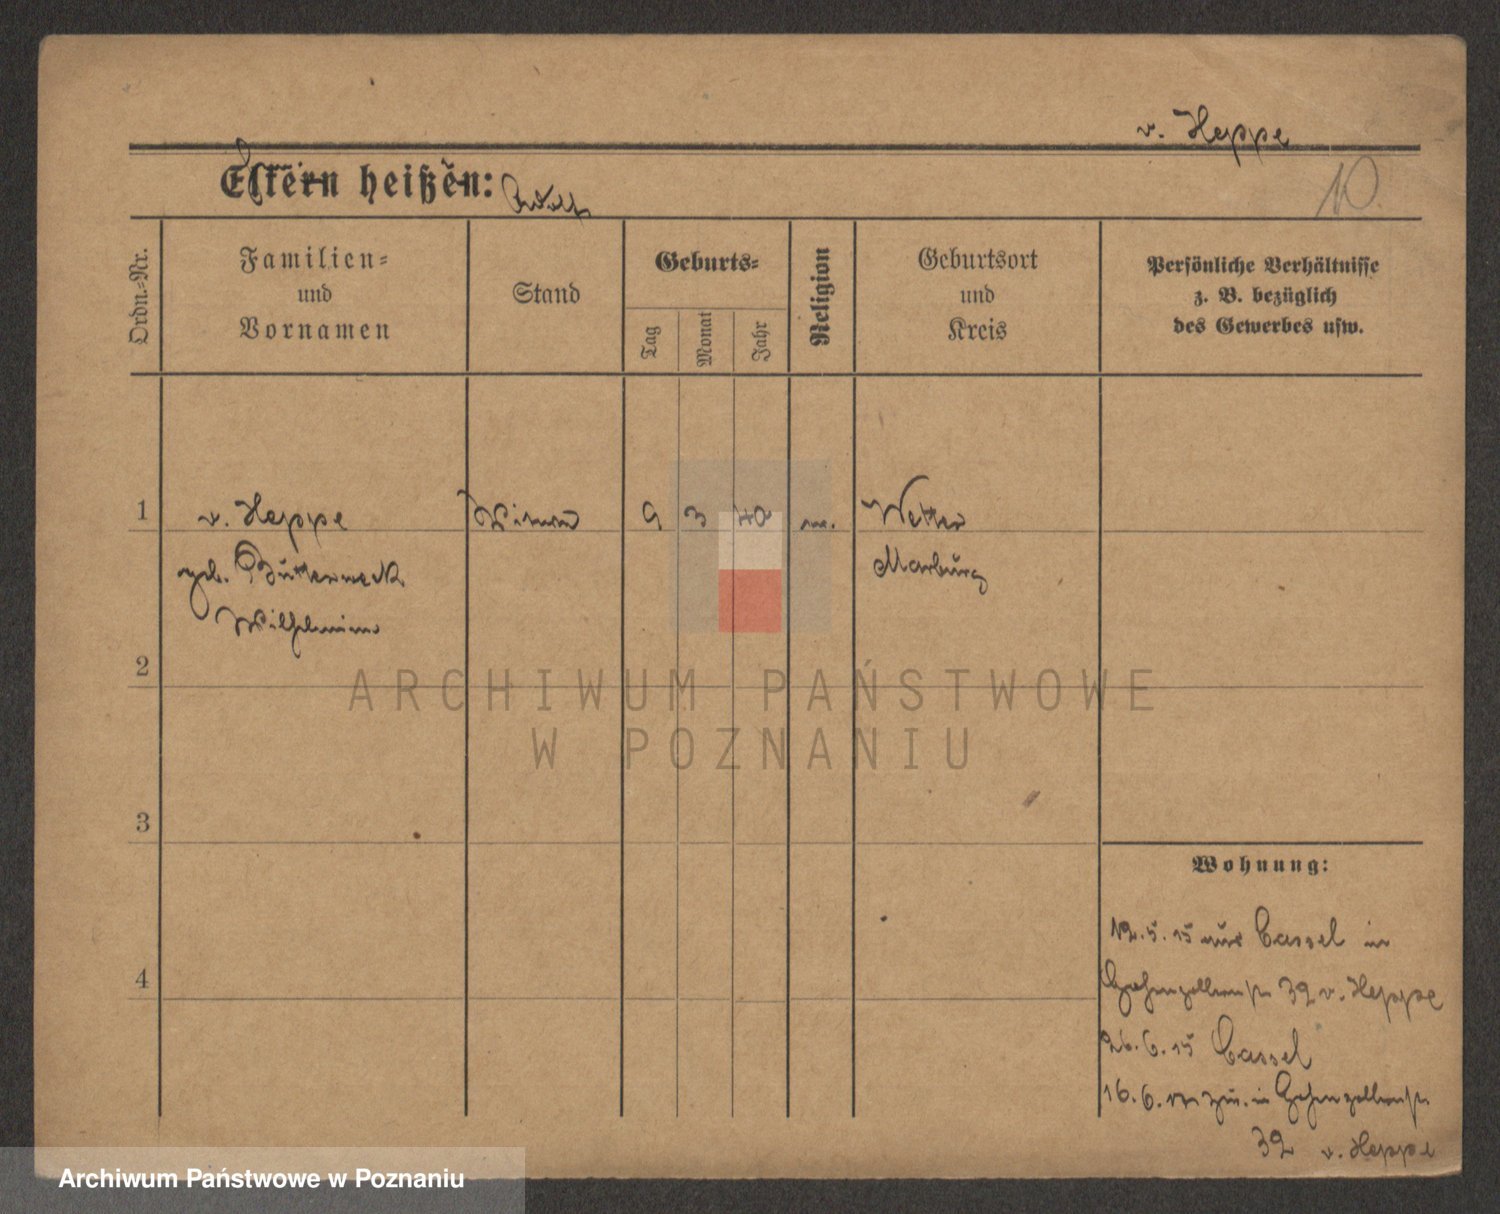 v. Heppe
Eltern heißen: Adolf
10.
Ordn.-Nr.
Familien-
und
Vornamen
Stand
Geburts-
Tag
Monat
Jahr
Religion
Geburtsort
und
Kreis
Persönliche Verhältnisse
z. B. bezüglich
des Gewerbes usw.
1
v. Heppe
geb. Butterweck
Wilhelmine
Witwe
9
3
Wetter
Marburg
2
ARCHIWUM PAŃSTWOWE
W POZNANIU
3
4
Wohnung:
12.5.15 aus Cassel in
Hohenzollernstr 32 v. Heppe
26.6.15 Cassel
16.6. zur. in Hohenzollernstr
32 v. Heppe
Archiwum Państwowe w Poznaniu